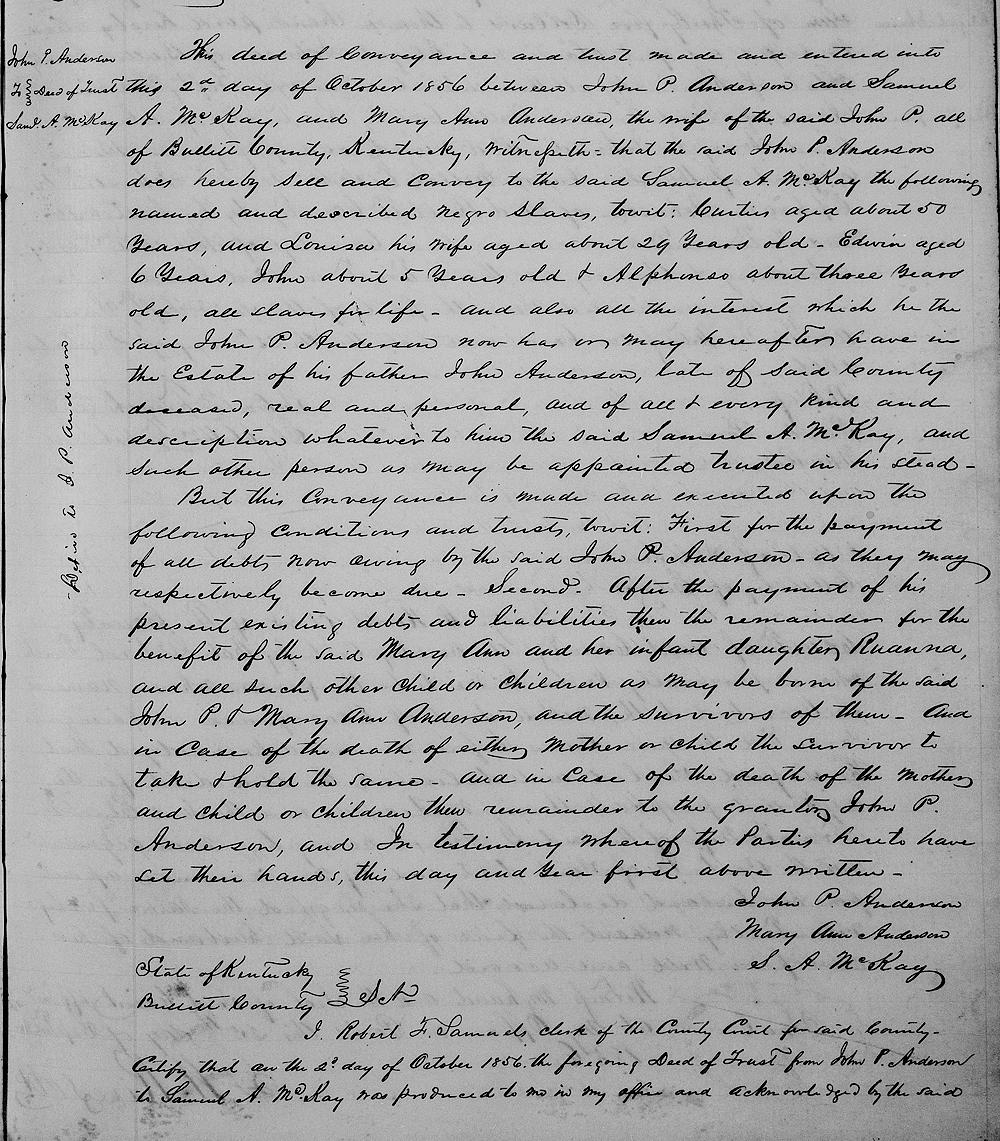 John P. Anderson
To Deed of Trust
Saml. A. McKay
This deed of Conveyance and trust made and entered into
this 2d day of October 1856 between John P. Anderson and Samuel
A. McKay, and Mary Ann Anderson, the wife of the said John P. all
of Bullitt County, Kentucky, Witnesseth - that the said John P. Anderson
does hereby sell and convey to the said Samuel A. McKay the following
named and described negro slaves, towit: Curtis aged about 50
Years, and Louisa his wife aged about 29 Years old - Edwin aged
6 Years, John about 5 Years old & Alphonso about three Years
old, all slaves for life - and also all the interest which he the
said John P. Anderson now has or may hereafter have in
the Estate of his father John Anderson, late of said County
deceased, real and personal, and of all & every kind and
description whatever to him the said Samuel A. McKay, and
such other person as may be appointed trustee in his stead -
But this Conveyance is made and executed upon the
following conditions and trusts, towit: First for the payment
of all debts now owing by the said John P. Anderson - as they may
respectively become due - Second - After the payment of his
present existing debts and liabilities then the remainder for the
benefit of the said Mary Ann and her infant daughter Ruanna,
and all such other child or children as may be born of the said
John P. & Mary Ann Anderson, and the survivors of them - And
in case of the death of either mother or child the survivor to
take & hold the same - and in case of the death of the mother
and child or children then remainder to the grantor John P.
Anderson, and In testimony whereof the Parties hereto have
set their hands, this day and year first above written -
John P. Anderson
Mary Ann Anderson
S. A. McKay
State of Kentucky
Bullitt County Sct
I Robert F. Samuels clerk of the County Court for said County -
Certify that on the 2d day of October 1856. the foregoing Deed of Trust from John P. Anderson
to Samuel A. McKay was produced to me in my office and acknowledged by the said
to J P. Anderson